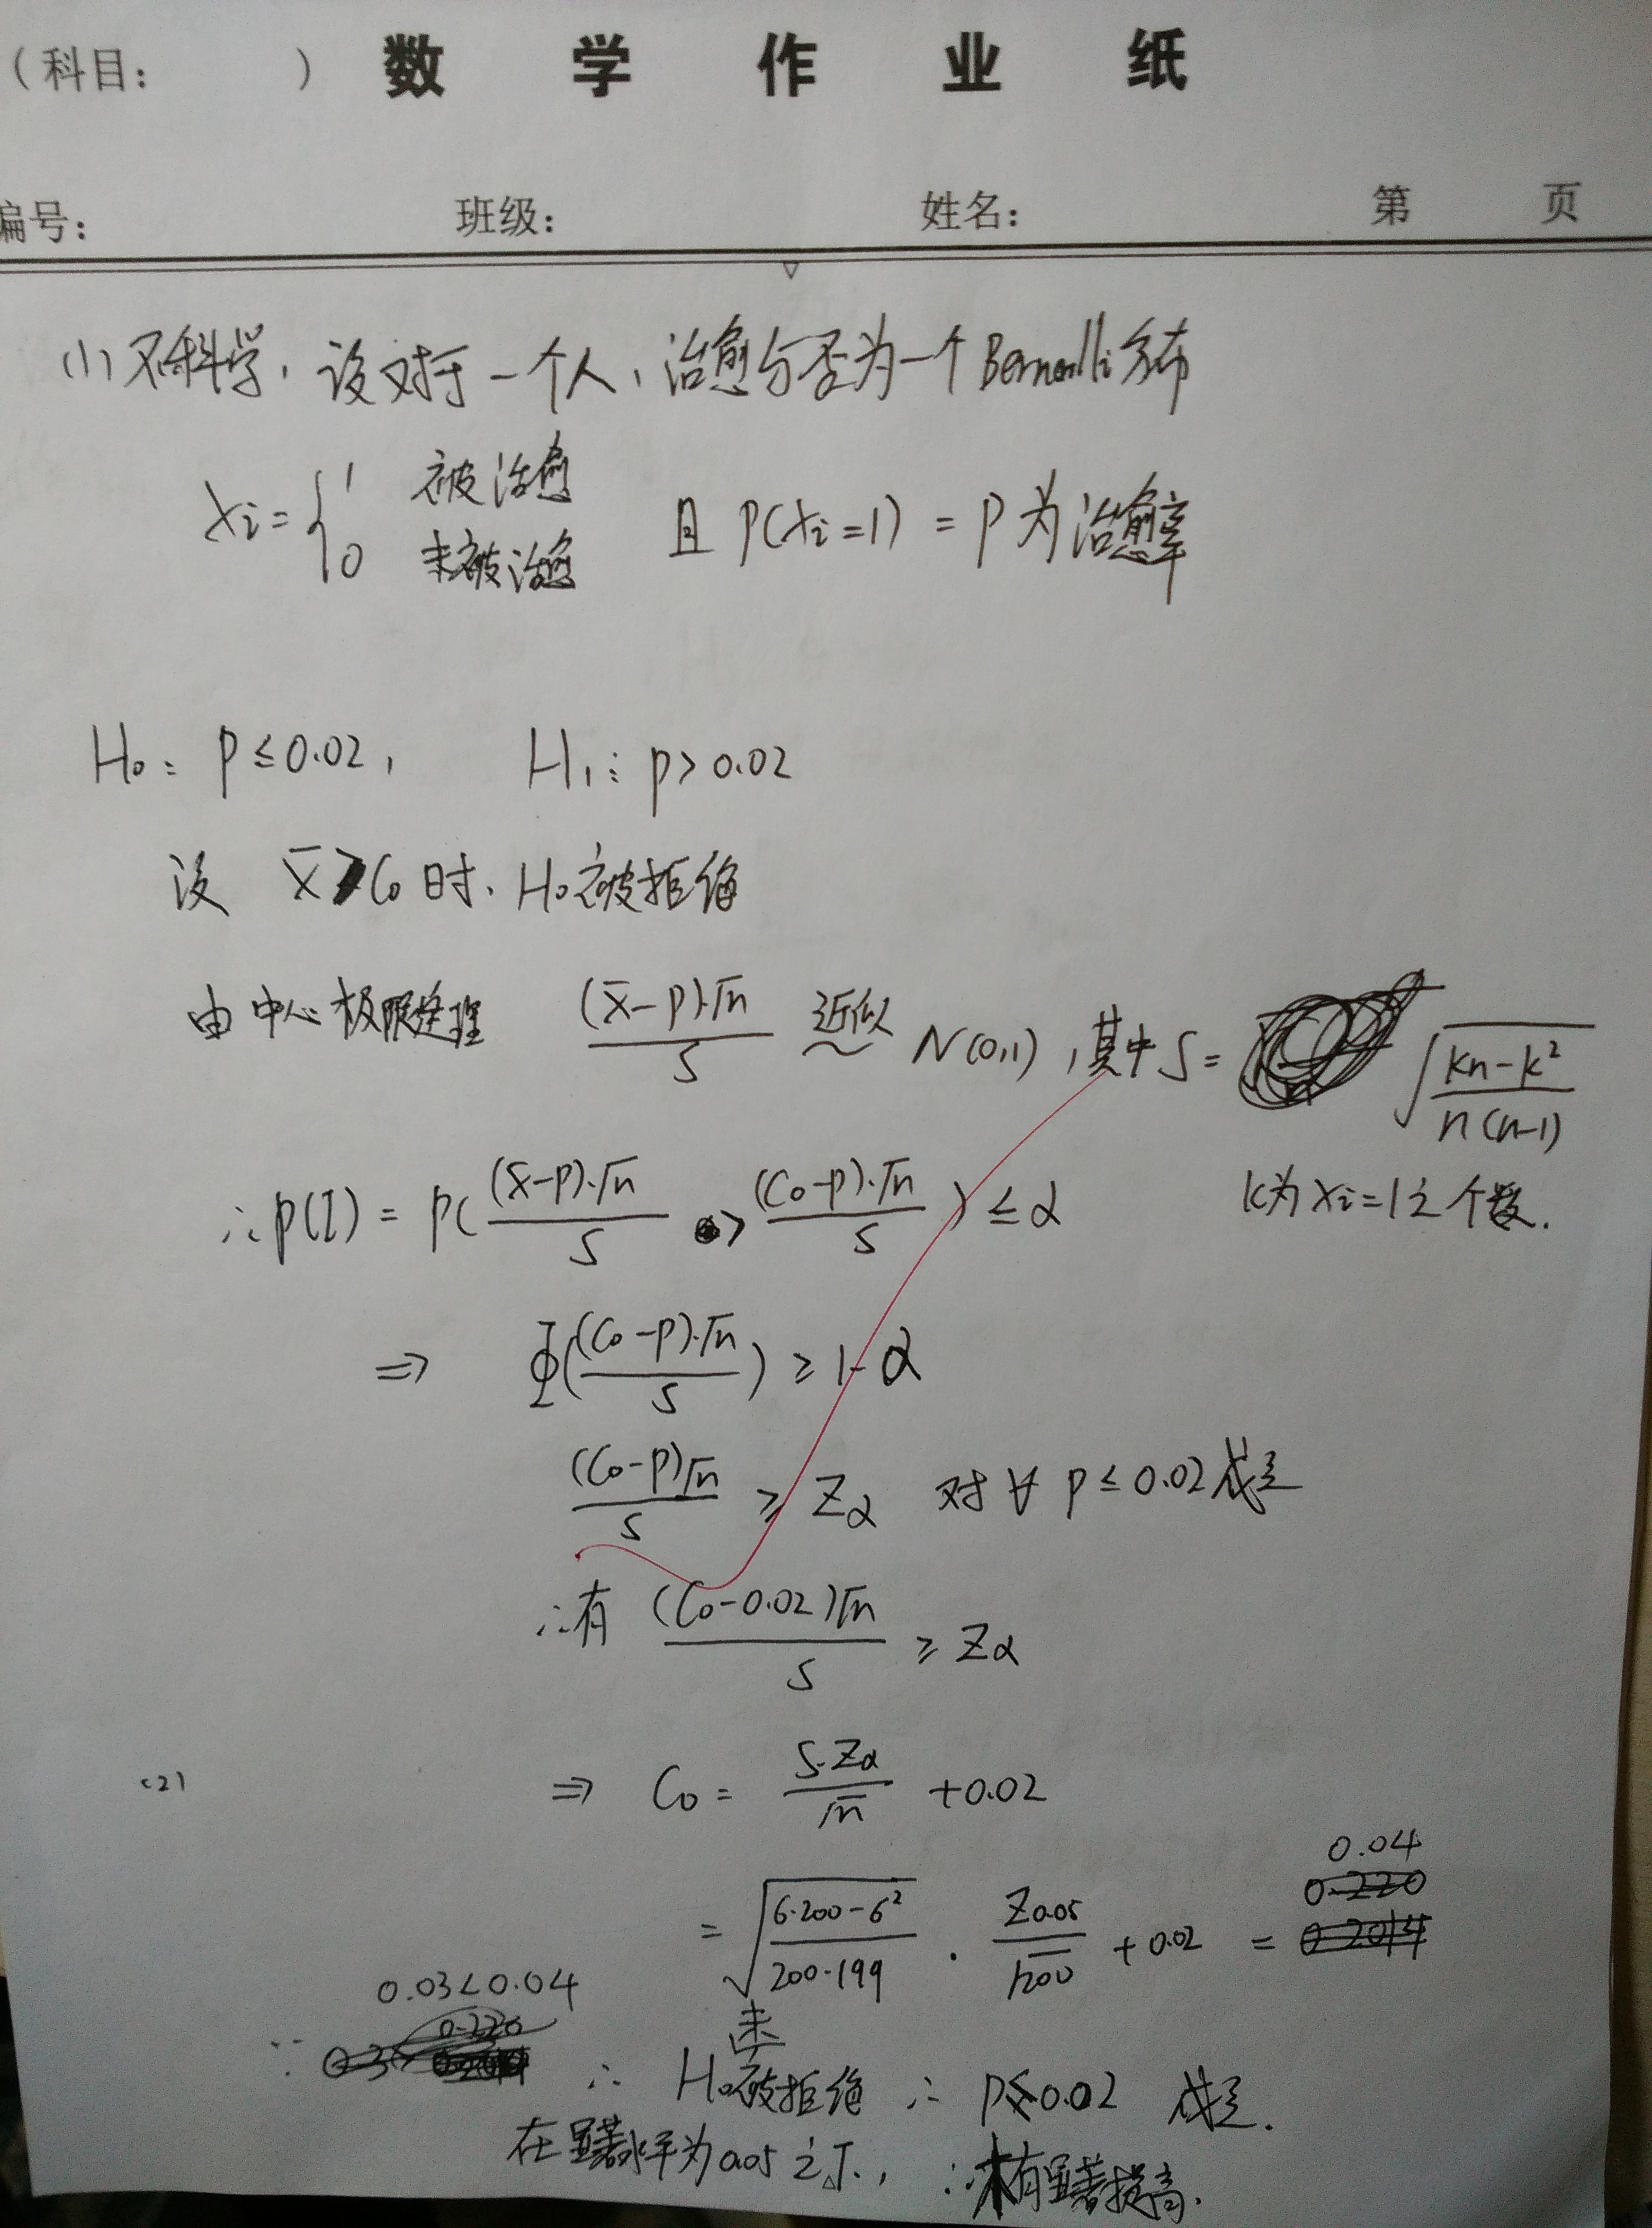 (科目: ) 数 学 作 业 纸
编号: 班级: 姓名: 第 页
(1) 不科学, 设对于一个人, 治愈与否为一个Bernoulli分布
Xi = { 1 被治愈
0 未被治愈 且 P(Xi=1) = P 为治愈率
H₀: P ≤ 0.02, H₁: P > 0.02
设 X̄ > C₀ 时, H₀被拒绝
由中心极限定理 (X̄-P)·√n / S 近似~ N(0,1), 其中 S = √((kn-k²)/(n(n-1)))
k为Xi=1之个数.
∴ P(I) = P((X̄-P)·√n / S > (C₀-P)·√n / S) ≤ α
⇒ Φ((C₀-P)·√n / S) ≥ 1-α
(C₀-P)√n / S ≥ Zα 对∀ P ≤ 0.02 成立
∴有 (C₀-0.02)√n / S ≥ Zα
(2) ⇒ C₀ = S·Zα / √n + 0.02
= √((6·200-6²)/(200·199)) · Z0.05/√200 + 0.02 = 0.04
∵ 0.03<0.04 ∴ H₀未被拒绝 ∴ P≤0.02 成立.
在显著水平为0.05之下, ∴未有显著提高.